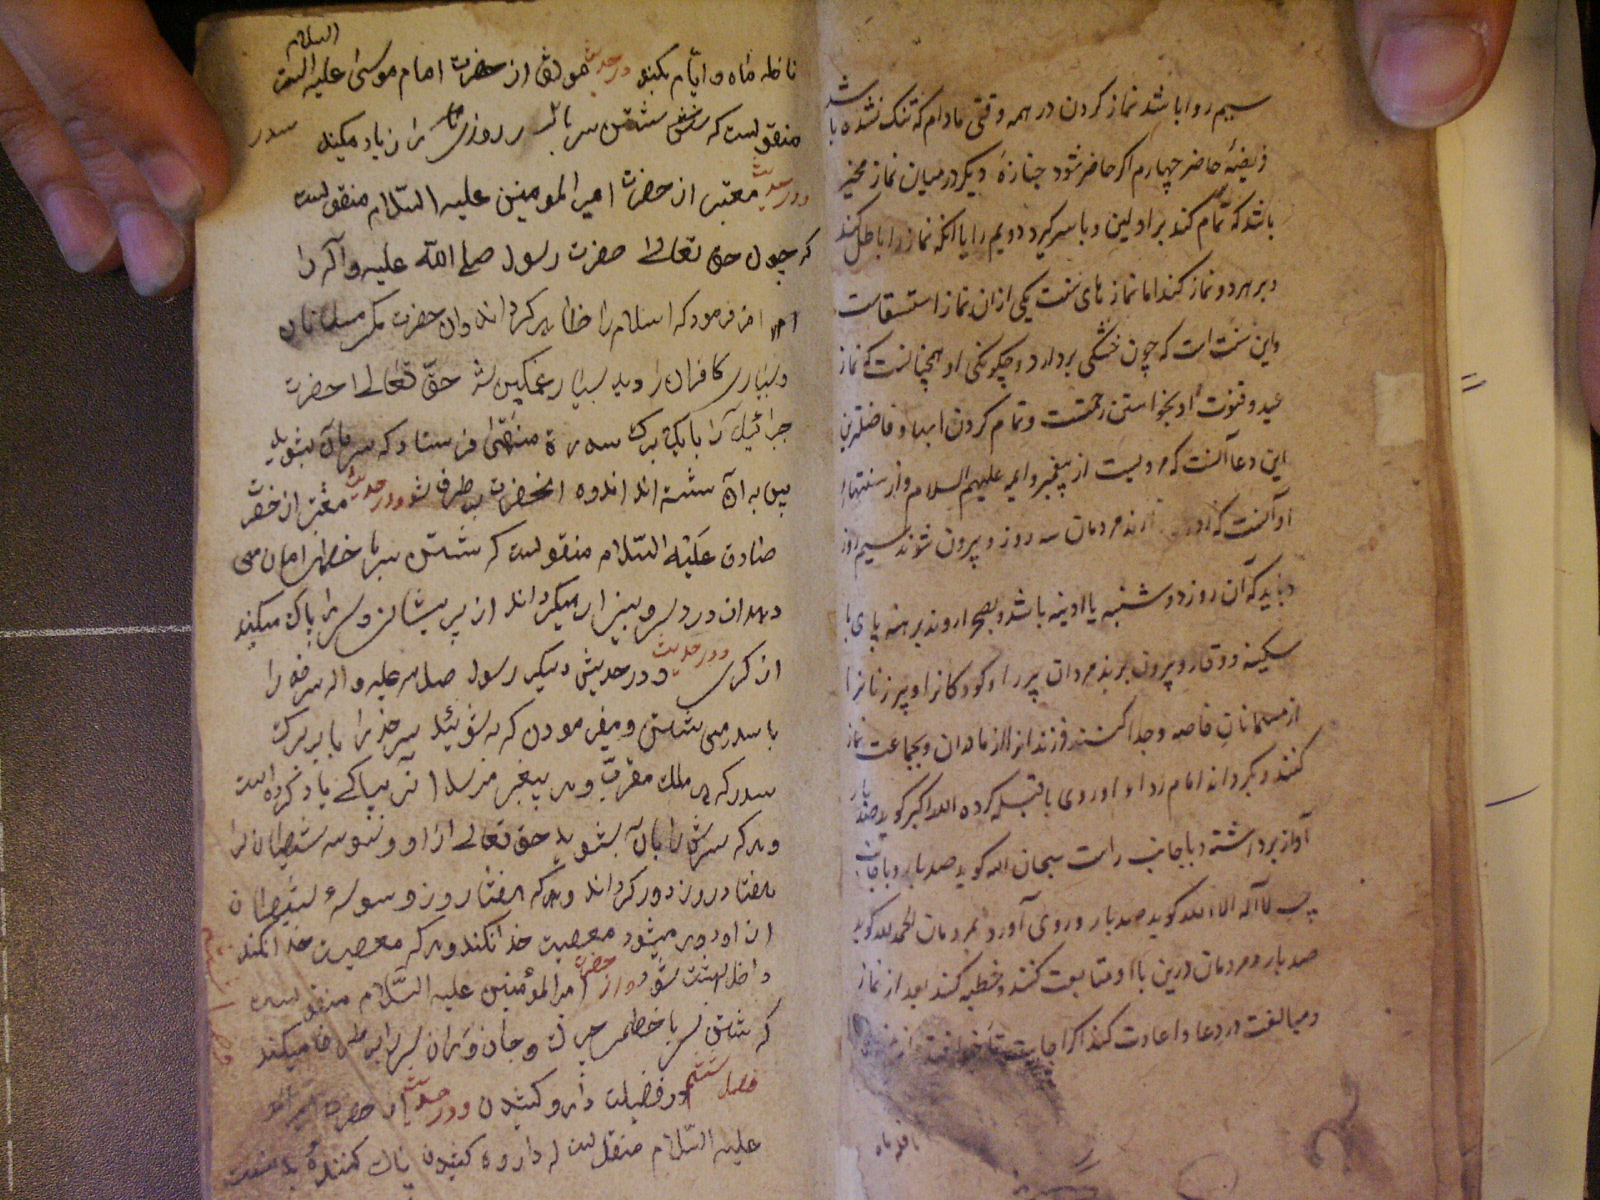 سیم روا باشد نماز کردن در همه وقتی مادام که تنک نشده باشد
فریضهٔ حاضر چهارم اکر حاضر شود جنازهٔ دیکر در میان نماز مخیر
باشد که تمام کند بر اولین و با سر کیرد دویم را یا انکه نماز را باطل کند
و بر هر دو نماز کند اما نماز های سنت یکی از ان نماز استسقاست
و این سنت است که چون خشکی بردارد و چکونکی او همچنانست که نماز
عید و قنوت او بخواستن رحمتست و تمام کردن ابها و فاضلترین
این دعا آنست که مرویست از پیغمبر و ایمه علیهم السلام و از سنتهاء
او آنست که مردمان سه روز و بیرون شوند سیم روز
و باید که آن روز دوشنبه یا ادینه باشد و بصحرا روند برهنه پای با
سکینه و وقار و بیرون برند مردان پیر را و کودکانرا و پیر زنانرا
از مسلمانان خاصه و جدا کنند فرزندانرا از مادران و بجماعت نماز
کنند و بکرداند امام ردا و او روی با قبله کرده الله اکبر کوید صد بار
آواز برداشته و با جانب راست سبحان الله کوید صد بار و با جانب
چپ لا اله الا الله کوید صد بار و روی آورد بمردمان الحمد لله کوید
صد بار و مردمان درین با او متابعت کنند و خطبه کند بعد از نماز
و مبالغت در دعا و اعادت کند اکر اجابت
ناخله ماه و ایام بکند در حدیث موثق از حضرت امام موسی علیه السلام
منقولست که شستن سر روزی را زیاد میکند سدر
و در حدیث معتبر از حضرت امیر المومنین علیه السلام منقولست
که چون حق تعالی حضرت رسول صلی الله علیه و آله را
امر فرمود که اسلام را ظاهر کرداند و ان حضرت مسلمانان
و بسیاری کافران را دید بسیار غمکین شد حق تعالی حضرت
جبرائیل را با برک سدرة منتهی فرستاد که سر بآن بشوید
پس به آن شسته اند اندوه انحضرت بر طرف شد و در حدیث معتبر از حضرت
صادق علیه السلام منقولست که شستن سر با خطمی امان می
دهد از درد سر و بیزار میکرداند از پریشانی و سر را پاک میکند
از کری و در حدیث و در حدیث دیکر رسول صلی الله علیه و اله سر خود را
با سدر می شستن و میفرمودن که بشوئید سر خود را با برک
سدر که هر ملک مقرب و هر پیغمبر مرسل انرا بپاکی یاد کرده است
و هر که سرش را بآن بشوید حق تعالی از او وسوسه شیطان را
هفتاد روز دور کرداند و هر که هفتاد روز وسوسهٔ شیطان
از او دور میشود معصیت خدا نکند و هر که معصیت خدا نکند
داخل بهشت شود و از حضرت امیر المؤمنین علیه السلام منقولست
که شستن سر با خطمی چرک و جانوران سر را بر طرف میکند
فصل ششم در فضیلت دارو کشیدن و در حدیث از حضرت امیر
علیه السلام منقولست که دارو کشیدن پاک کننده